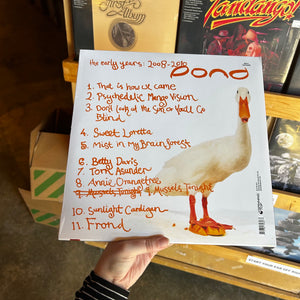 First Album
Fandango!
the early years: 2008-2010
POND
1. That is how we came
2. Psychedelic Mango Vision
3. Don't Look at the Sun or You'll Go
Blind
4. Sweet Loretta
5. Mist in My Brain forest
6. Betty Davis
7. Torn Asunder
8. Annie Orangetree
9. Mussels Tonight 9 Mussels Tonight
10. Sunlight Cardigan
11. Frond
START YOUR